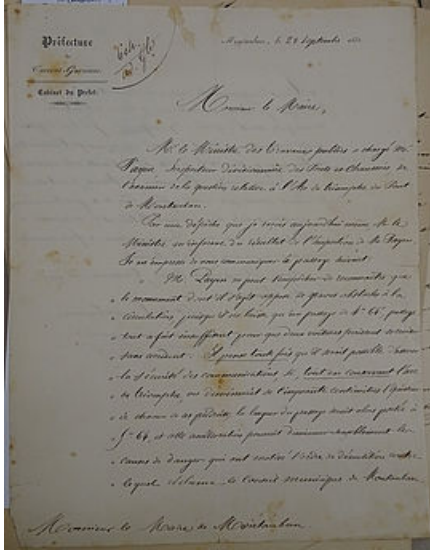 Préfecture
de
Tarn et Garonne
Cabinet du Préfet.
Montauban, le 28 Septembre
Monsieur le Maire,
Mr. le Ministre des Travaux publics a chargé Mr
Payen, Inspecteur divisionnaire des Ponts et Chaussées de
l'examen de la question relative à l'Arc de triomphe du Pont
de Montauban.
Par une dépêche que je reçois aujourd'hui même Mr le
Ministre m'informe du résultat de l'Inspection de Mr Payen
Je m'empresse de vous communiquer le passage suivant:
" Mr Payen ne peut s'empêcher de reconnaître que
" le monument dont il s'agit oppose de graves obstacles à la
" circulation, puisqu'il ne laisse qu'un passage de 4m 66, passage
" tout à fait insuffisant pour que deux voitures puissent
" sans accident. Il pense toutefois qu'il serait possible d'assurer
" la sécurité des communications, si, tout en conservant l'arc
" de triomphe, on diminuait de cinquante centimètres l'épaisseur
" de chacun de ses piédroits, la largeur du passage serait alors portée à
" 5m 66, et cette amélioration pourrait diminuer sensiblement les
" causes de danger qui ont motivé l'ordre de démolition contre
" lequel réclame le Conseil municipal de Montauban
Monsieur le Maire de Montauban